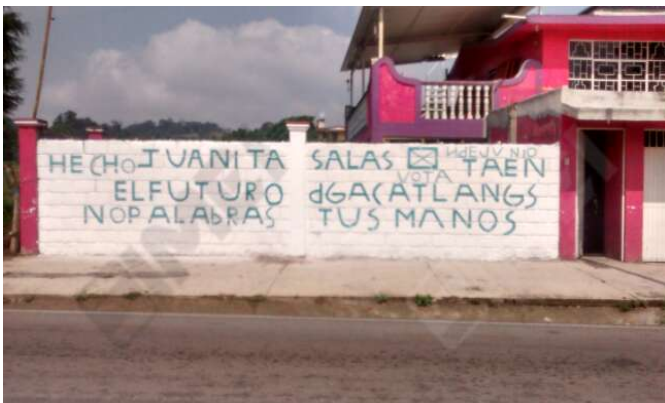 HECHO JUANITA SALAS 1 DE JUNIO
VOTA TAEN
EL FUTURO dGACATLANGS
NO PALAbRAS TUS MANOS